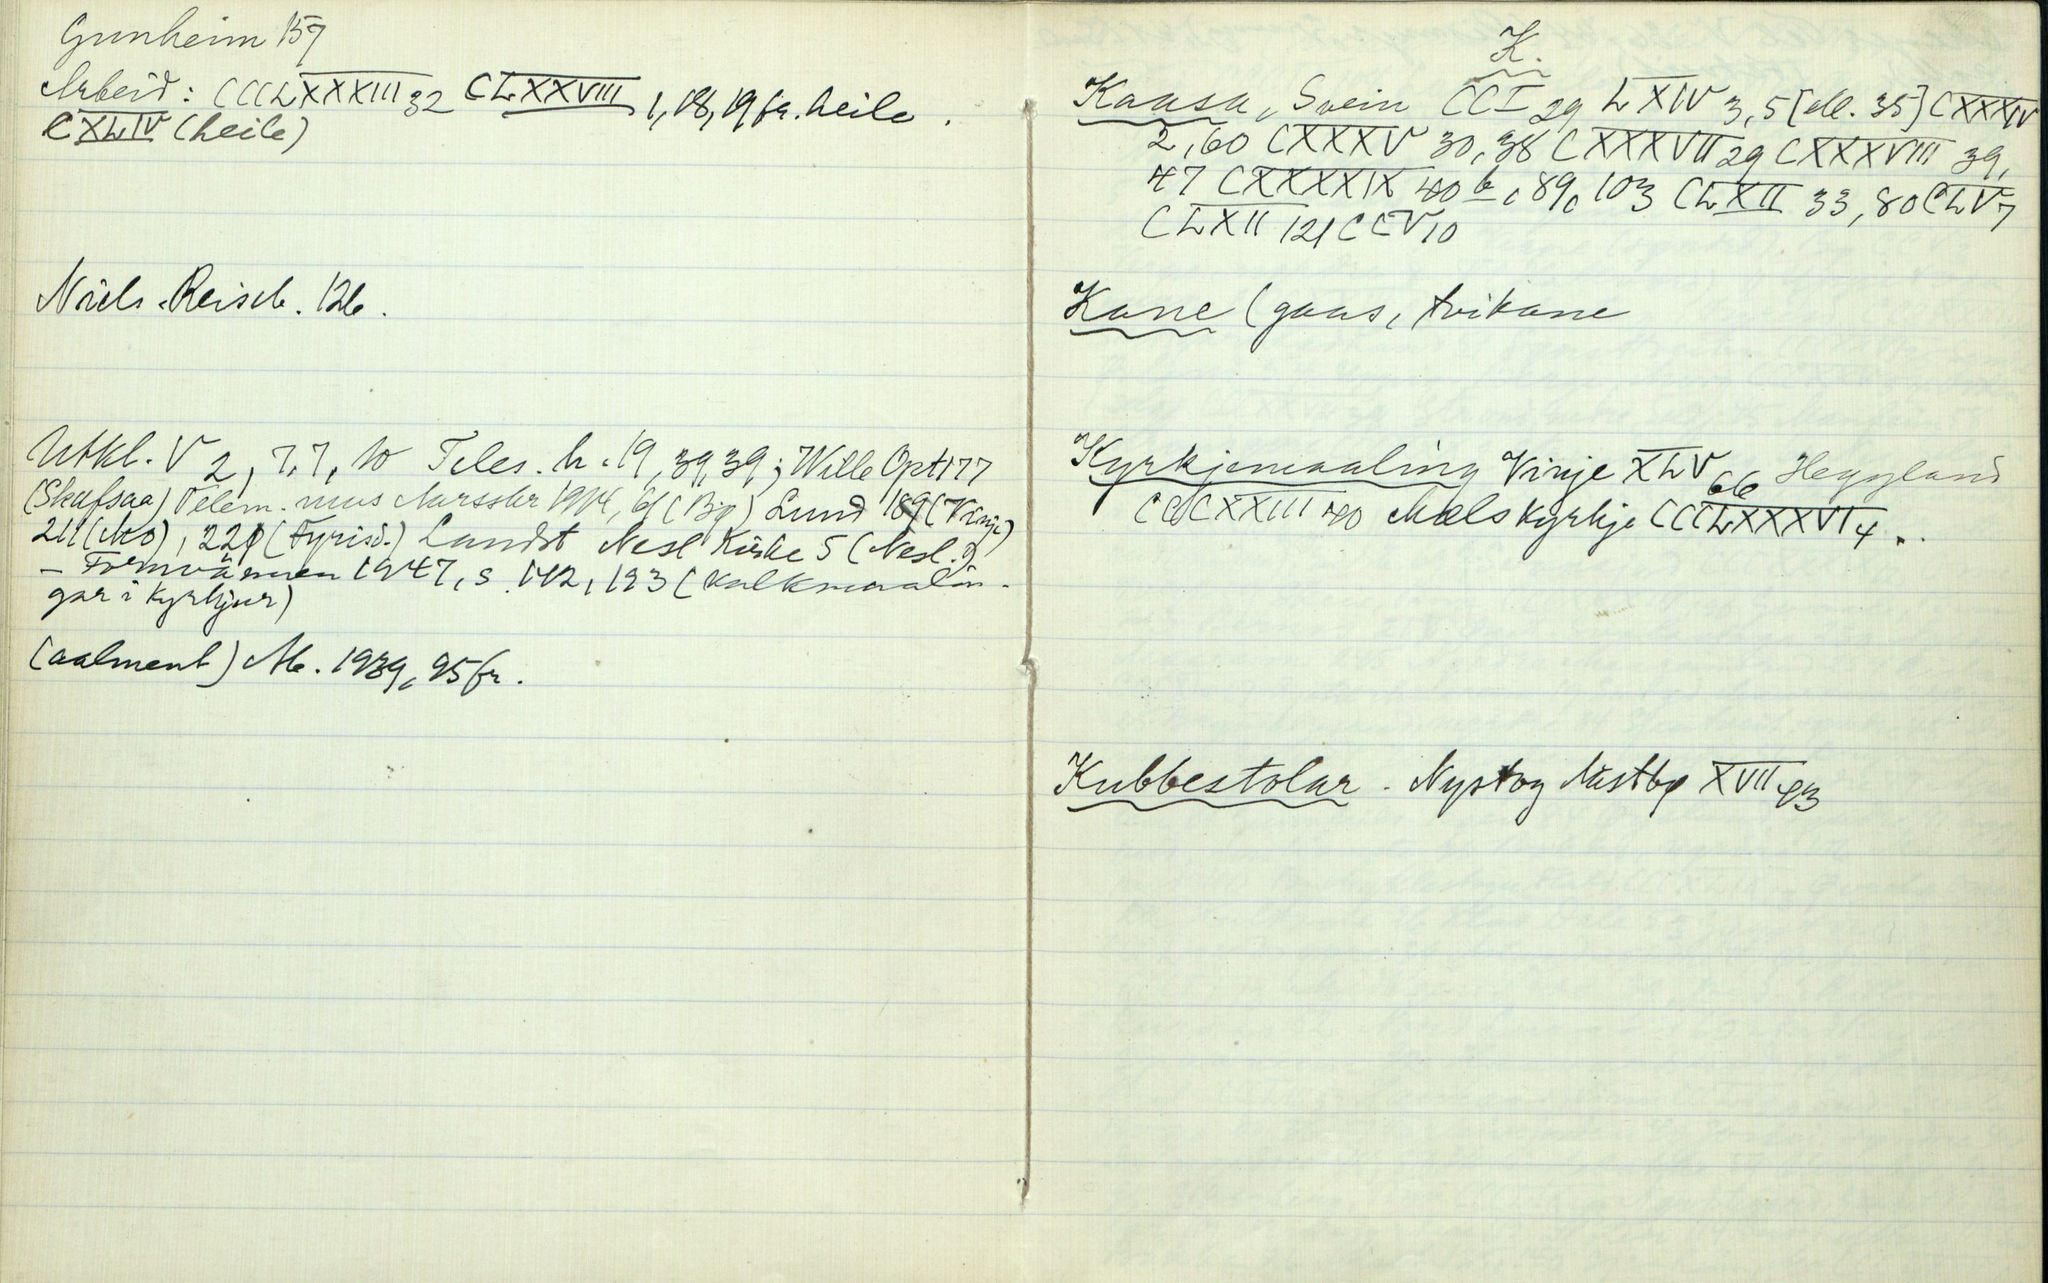 Gunheim 157
Arbeid: CCCLXXXIII 32 CLXXVIII 1, 18, 19 fr. heile.
CXLIV (heile)
Niels. Reiseb. 126.
Utkl. V 2, 7, 7, 10 Teles. h. 19, 39, 39; Wille Opt 177
(Skafsaa) Telem. mus Aarsskr 1914, 61 (Bø) Lund 189 (Vinje)
211 (Mo), 220 (Fyrisd.) Landst Nesl Kirke 5 (Nesl.)
- Fornvännen 1947, s. 142, 193 (kalkmaalin-
gar i kyrkjur)
(aalment) Ab. 1939, 95 fr.
K.
Kaasa, Svein CCI 29 LXIV 3, 5 [ell. 35] CXXXIV
2, 60 CXXXV 30, 38 CXXXVII 29 CXXXVIII 39,
47 CXXXXIX 40 b, 89, 103 CLXII 33, 80 CLV 7
CLXII 121 CCV 10
Kane (gaas, tvikane
Kyrkjemaaling Vinje XLV 66 Heggland
CCCXXIII 40 Mælskyrkje CCCLXXXVI 4.
Kubbestolar. Nystog Aastbø XVII 93